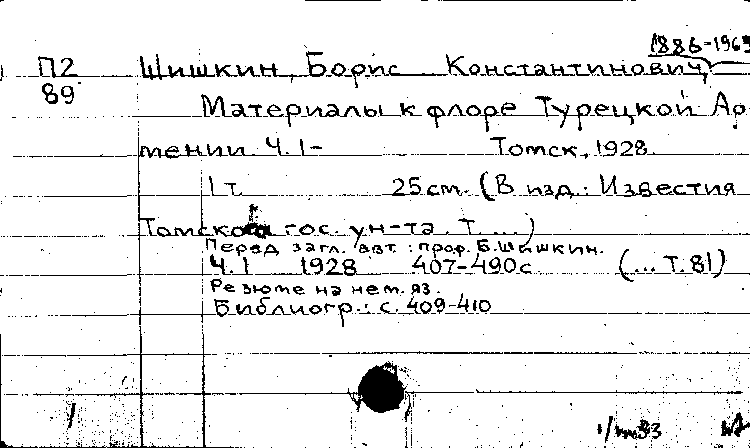 1886-1963
П2 Шишкин, Борис Константинович,
89 Материалы к флоре Турецкой Ар
мении. Ч. 1- Томск, 1928.
1 т. 25 см. (В изд.: Известия
Томского гос. ун-та. Т. ...)
Перед загл. авт.: проф. Б. Шишкин.
Ч. 1 1928 407-490 с. (... Т. 81)
Резюме на нем. яз.
Библиогр.: с. 409-410